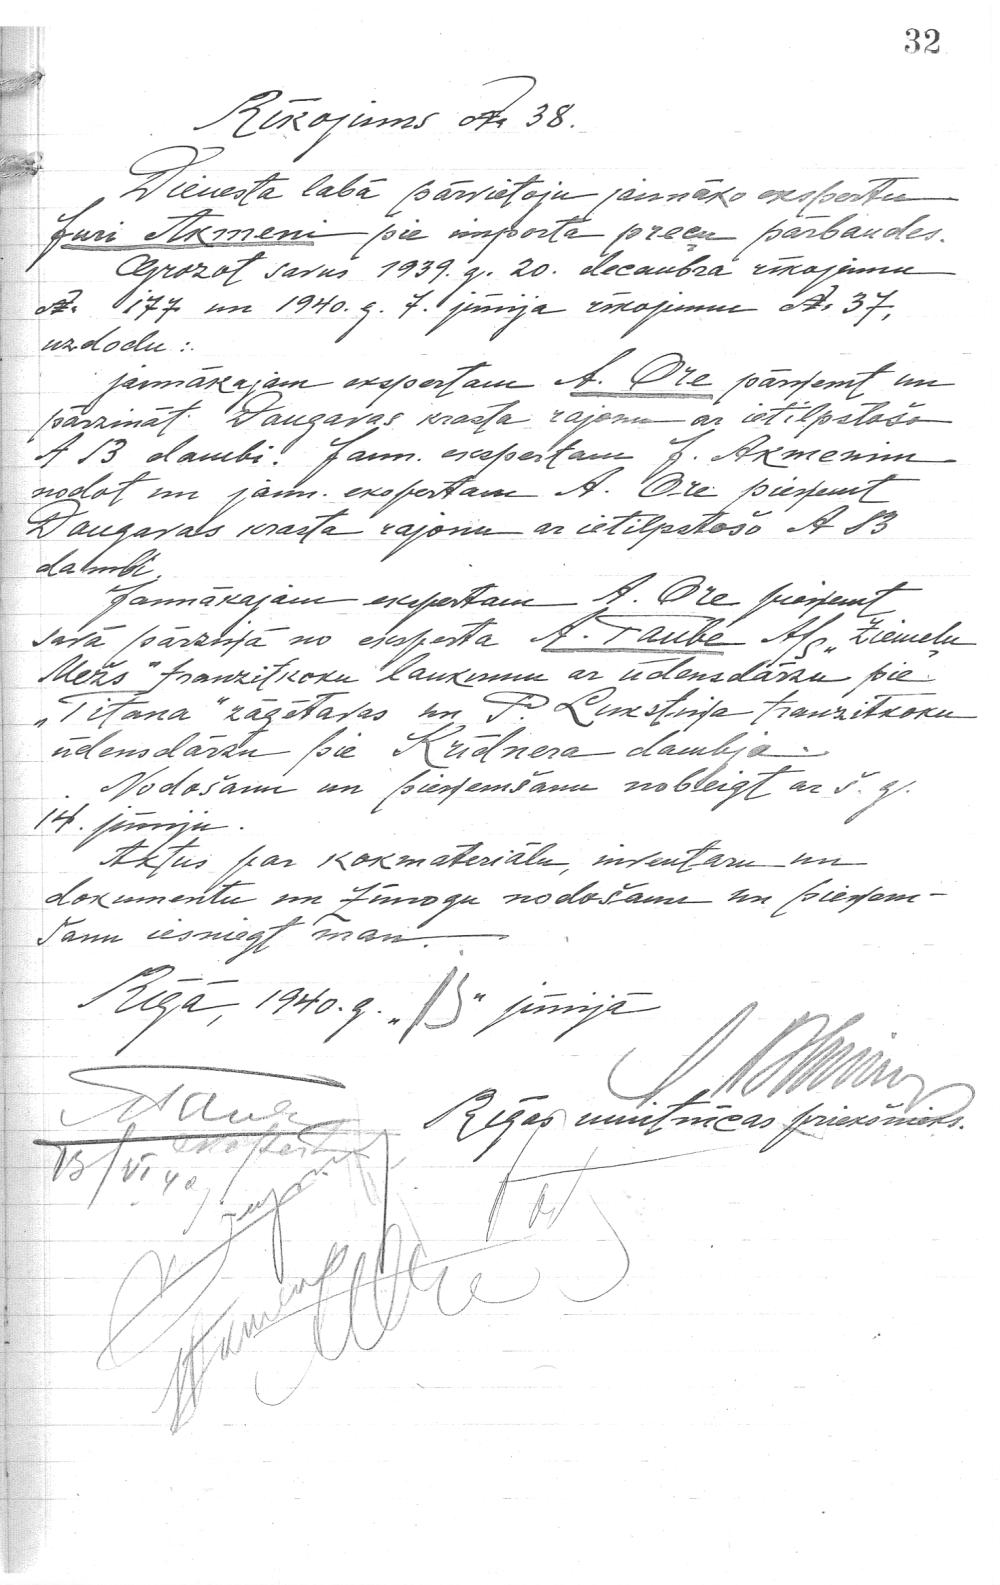 32
Rīkojums № 38.
Dienesta labā pārvietoju jaunāko ekspertu
Juri Akmeni pie importa preču pārbaudes.
Grozot savus 1939. g. 20. decembra rīkojumu
№ 177 un 1940. g. 7. jūnija rīkojumu № 37,
uzdodu:
jaunākajam ekspertam A. Ore pārņemt un
pārzināt Daugavas krasta rajonu ar ietilpstošo
AB dambi. Jaun. ekspertam J. Akmenim
nodot un jaun. ekspertam A. Ore pieņemt
Daugavas krasta rajonu ar ietilpstošo AB
dambi.
Jaunākajam ekspertam A. Ore pieņemt
savā pārziņā no eksperta A. Taube A/S „Ziemeļu
Mežs" tranzitkoku laukumu ar ūdensdārzu pie
„Titāna" zāģētavas un P. Lukstiņa tranzitkoku
ūdensdārzu pie Krīdnera dambja.
Nodošanu un pieņemšanu nobeigt ar š. g.
14. jūniju.
Aktus par kokmateriālu, inventaru un
dokumentu un zīmogu nodošanu un pieņem-
šanu iesniegt man.
Rīgā, 1940. g. „13" jūnijā
Rīgas muitnīcas priekšnieks.
13/VI 40